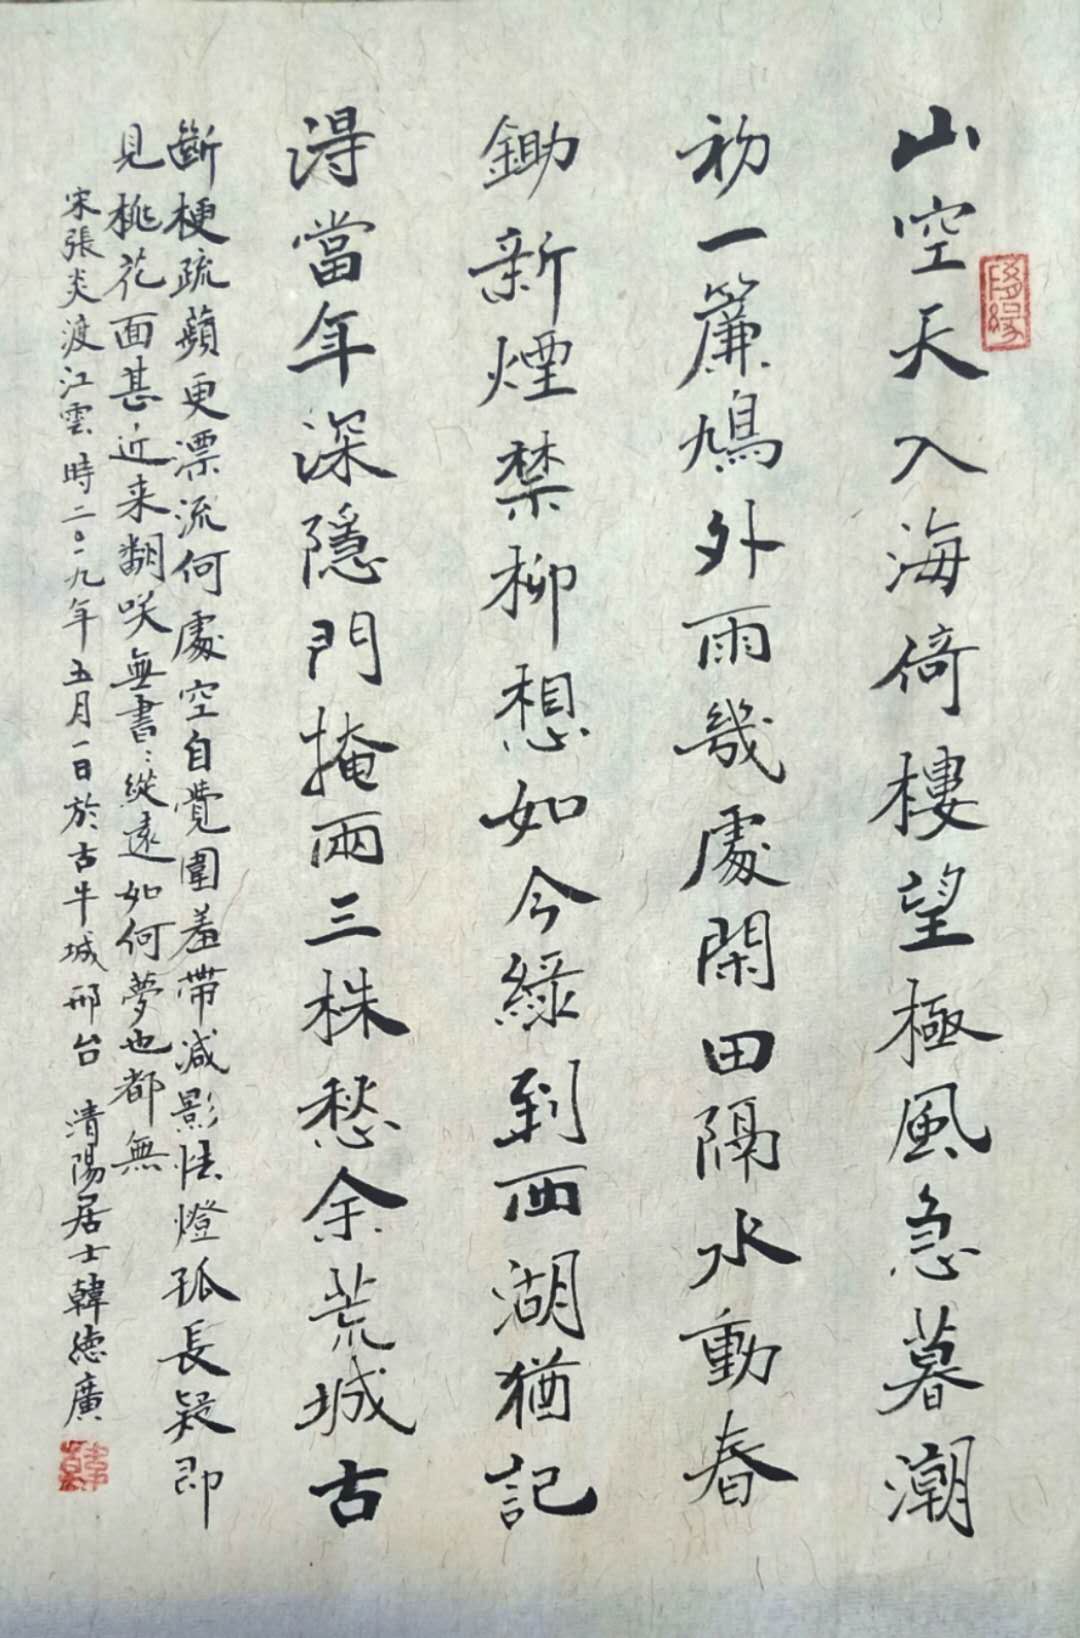 山空天入海倚樓望極風急暮潮
初一簾鳩外雨幾處閑田隔水動春
鋤新煙禁柳想如今綠到西湖猶記
淂當年深隱門掩兩三株愁余荒城古
斷梗疏蘋更漂流何處空自覺圍羞帶減影怯燈孤長疑即
見桃花面甚近来翻咲無書:縱遠如何夢也都無
宋張炎渡江雲時二〇一九年五月一日於古牛城邢台 清陽居士韓德廣